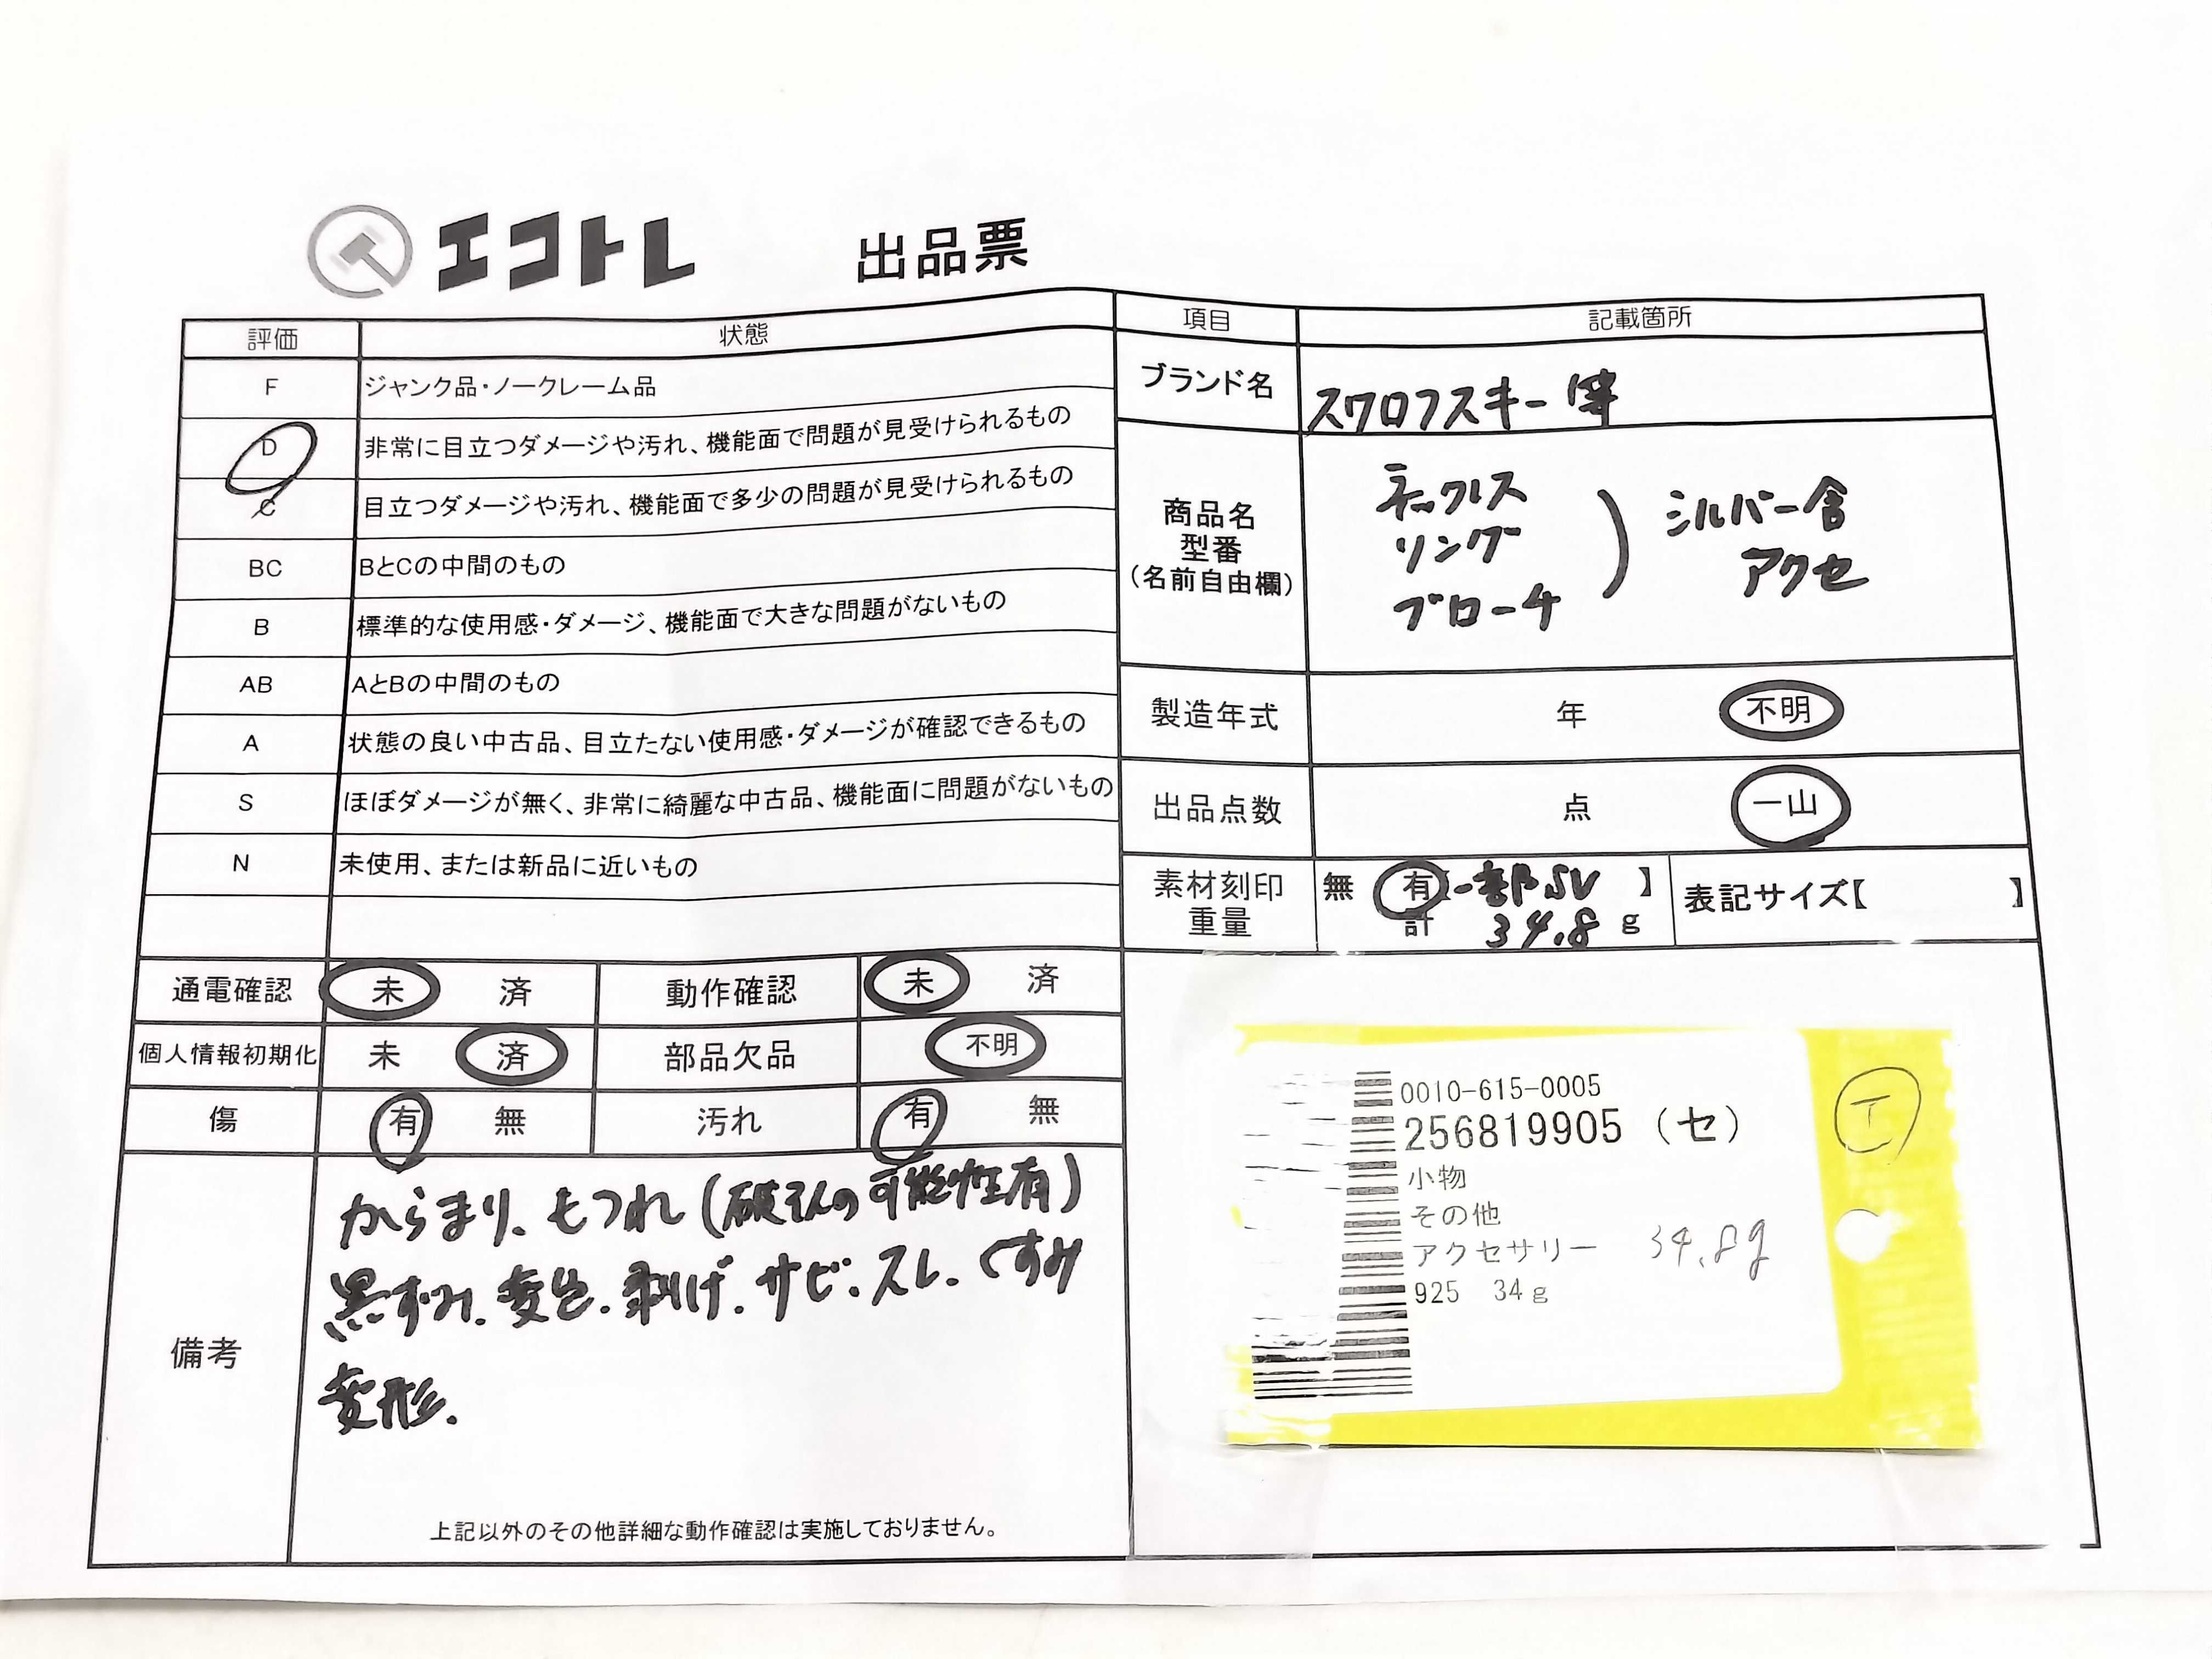 エコトレ 出品票
評価 状態
F ジャンク品・ノークレーム品
D 非常に目立つダメージや汚れ、機能面で問題が見受けられるもの
C 目立つダメージや汚れ、機能面で多少の問題が見受けられるもの
BC BとCの中間のもの
B 標準的な使用感・ダメージ、機能面で大きな問題がないもの
AB AとBの中間のもの
A 状態の良い中古品、目立たない使用感・ダメージが確認できるもの
S ほぼダメージが無く、非常に綺麗な中古品、機能面に問題がないもの
N 未使用、または新品に近いもの
項目 記載箇所
ブランド名 スワロフスキー 等
商品名
型番
(名前自由欄)
ネックレス
リング
ブローチ
) シルバー含
アクセ
製造年式 年 不明
出品点数 点 一山
素材刻印 無 有【一部SV 】
重量 計 34.8 g
表記サイズ【 】
通電確認 未 済 動作確認 未 済
個人情報初期化 未 済 部品欠品 不明
傷 有 無 汚れ 有 無
備考
からまり、もつれ(破そんの可能性有)
黒ずみ、変色、剥げ、サビ、スレ、くすみ
変形、
上記以外のその他詳細な動作確認は実施しておりません。
0010-615-0005
256819905 (セ)
小物
その他
アクセサリー 34.8g
925 34g
エ